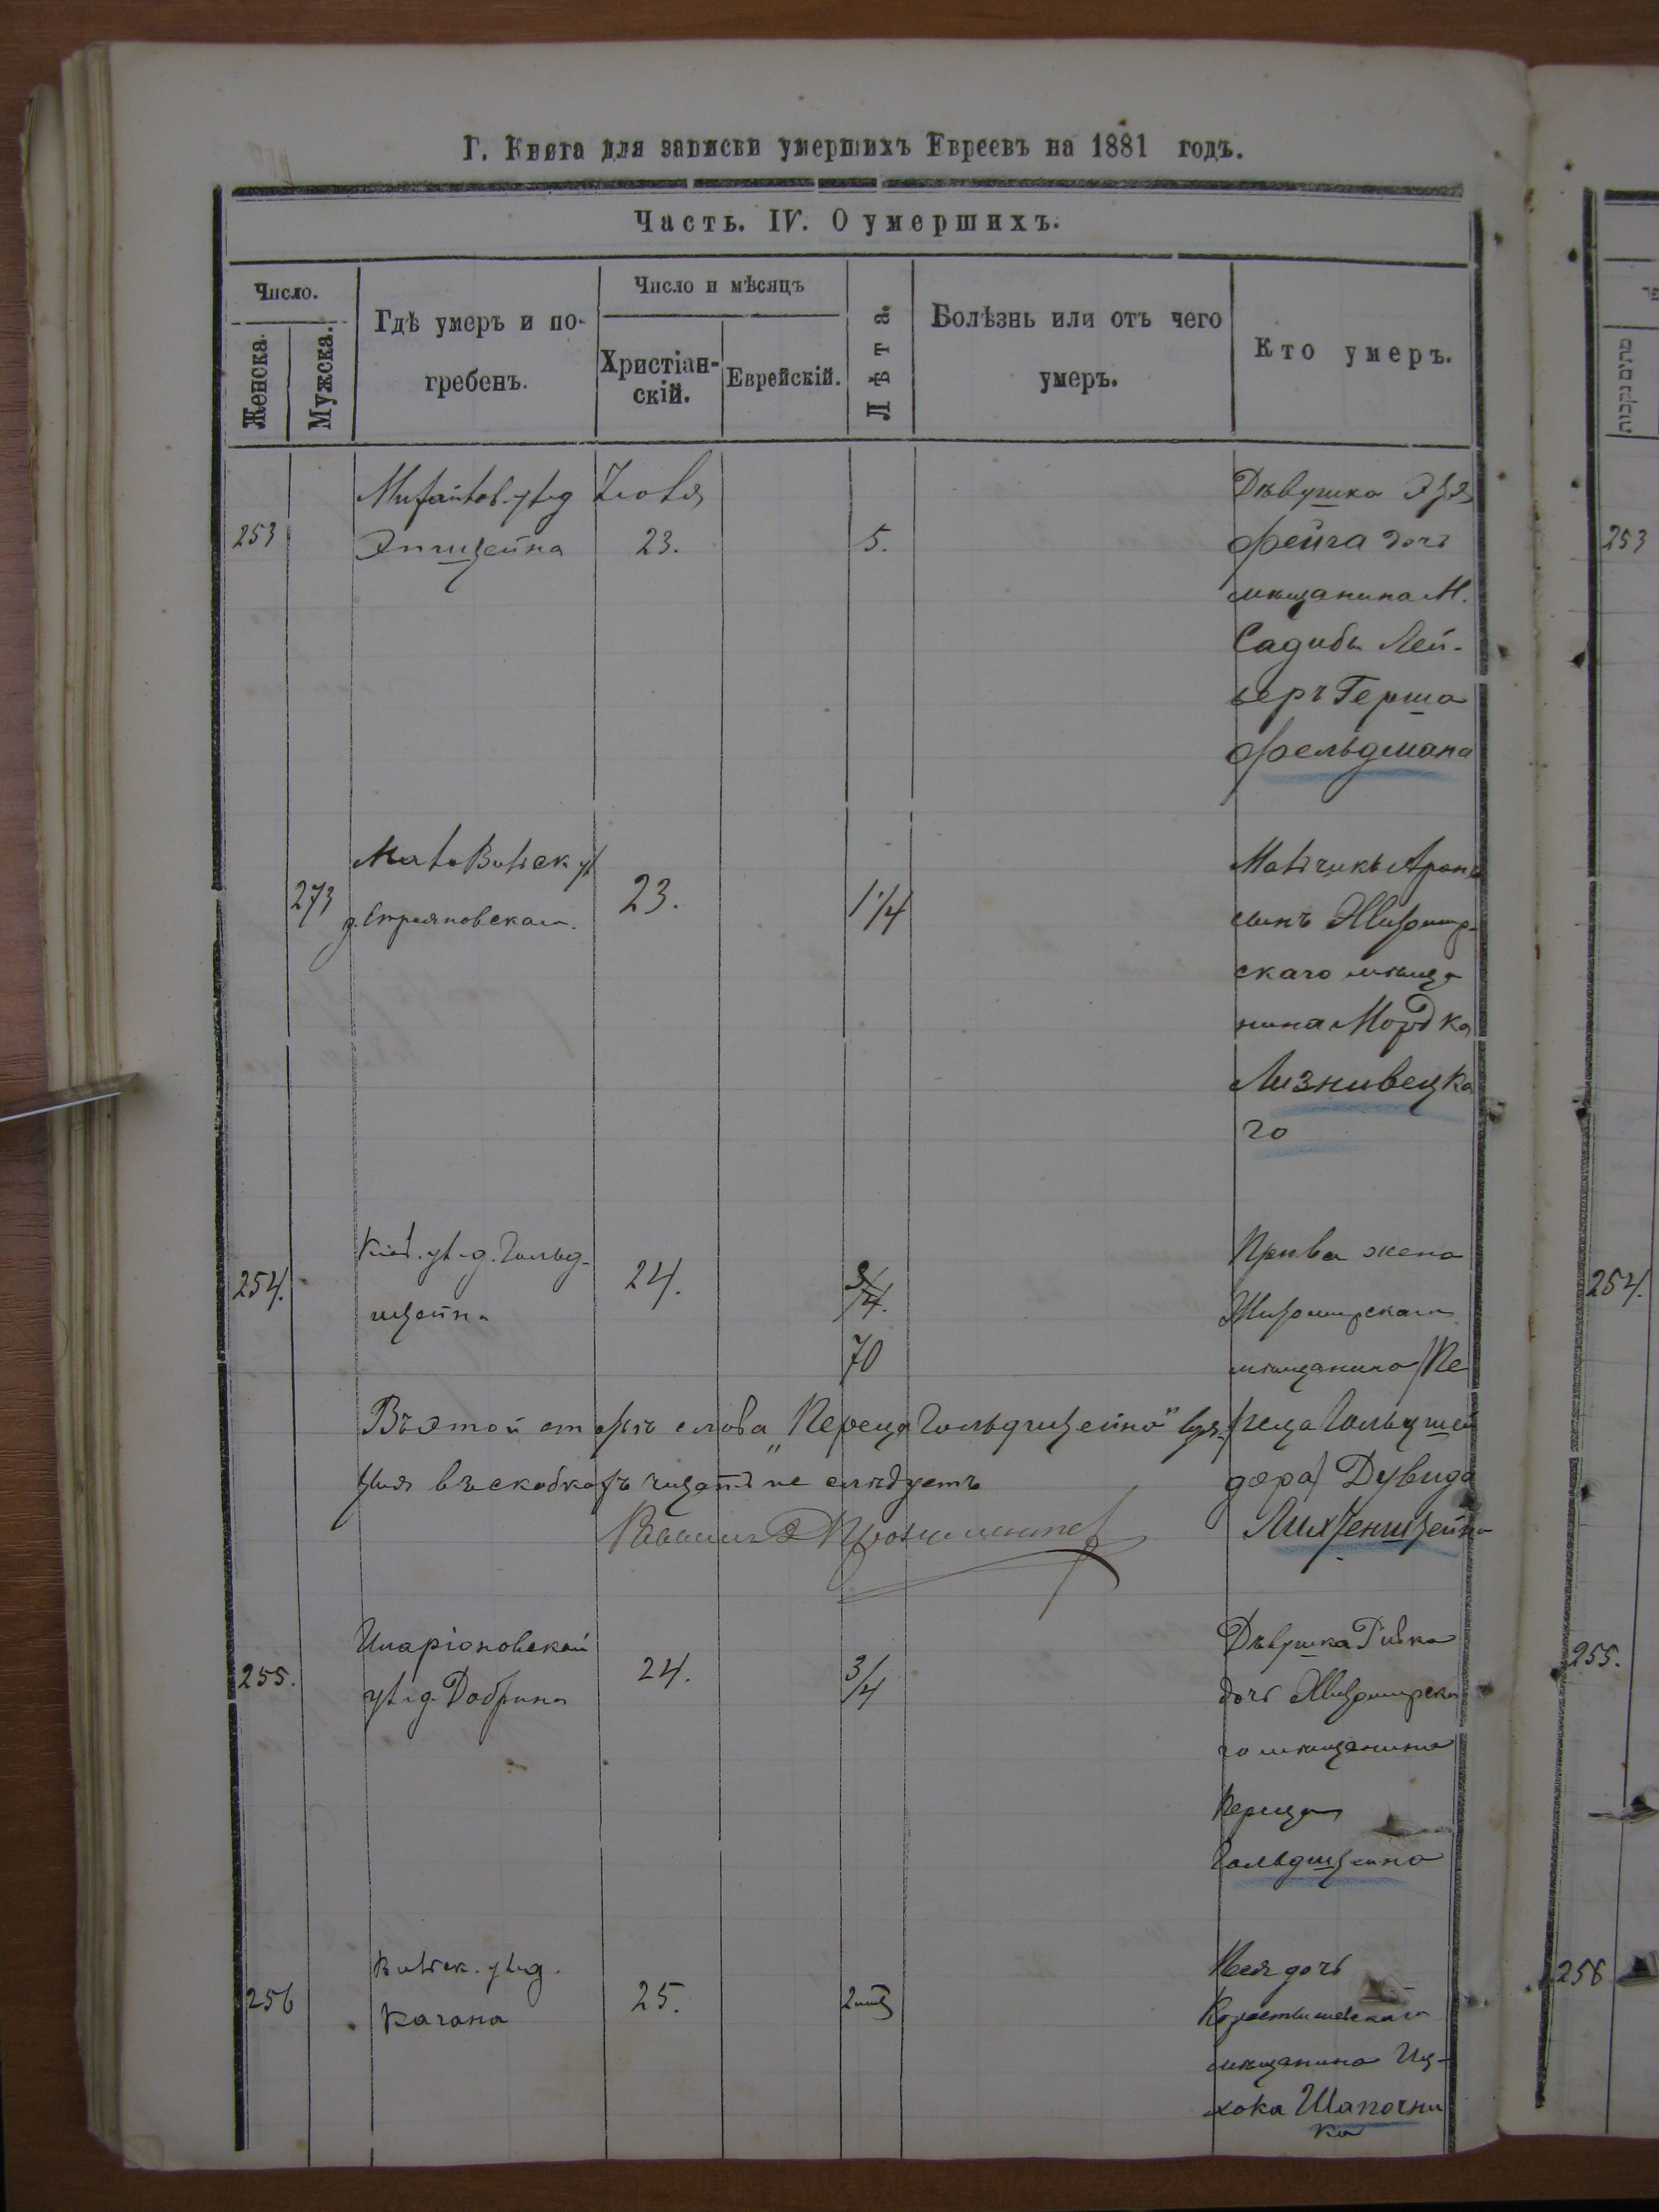 Г. Книга для записки умершихъ Евреевъ на 1881 годъ.
Часть. IV. О умершихъ.
Число.
Женска.
Мужска.
Гдѣ умеръ и по-
гребенъ.
Число и мѣсяцъ
Христіан-
скій.
Еврейскій.
Лѣта.
Болѣзнь или отъ чего
умеръ.
Кто умеръ.
253
Михайлов. ул. д
Эпштейна
Іюля
23.
5.
Дѣвушка
Фейга дочь
мѣщанина М.
Садибы Лей-
зеръ Герша
Фельдмана
273
Мало Вильск ул
д. Стрияновскаго.
23.
1 1/4
Мальчикъ Аронъ
сынъ Житомир-
скаго мѣща
нина Мордка
Лизнивецка
го
254.
Кіев. ул. д. Гольд-
штейна
24.
3/4.
70
Прива жена
Житомирскаго
мѣщанина (Пе
реца Гольдштей
Дувида
Лихтенштейна
Въ этой графѣ слова „Переца Гольдштейна" взя-
тыя въ скобкахъ читать не слѣдуетъ
Раввинъ
255.
Иларіоновской
ул. д. Добрина
24.
3/4
Дѣвушка Ривка
дочь Житомирска
го мѣщанина
Переца
Гольдштейна
256
Вильск. ул. д.
Кагана
25.
2
Песя дочь
Коростышевскаго
мѣщанина Иц-
хока Шапочни
ка
253
254.
255.
256